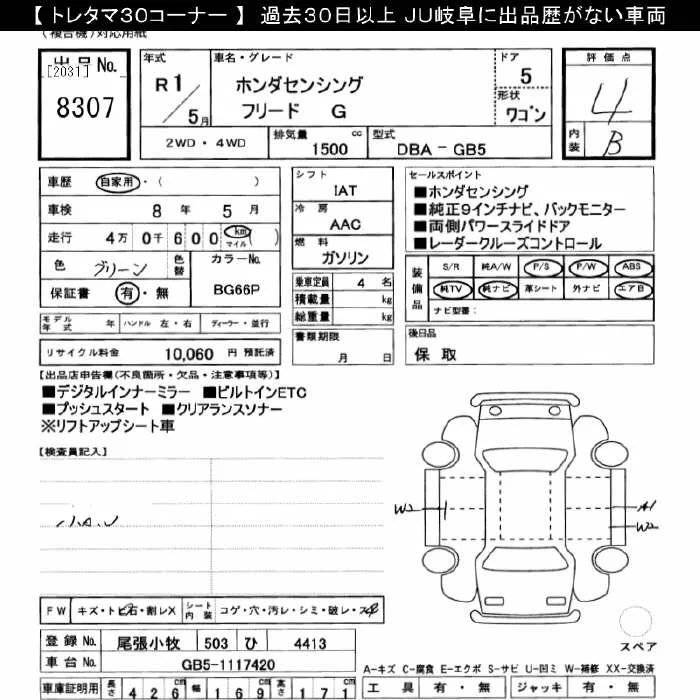 【 トレタマ30コーナー 】 過去30日以上 JU岐阜に出品歴がない車両
(複合機)対応用紙
出品No. [2031]
8307
年式 R1/5月
車名・グレード ホンダセンシング
フリード G
ドア 5
形状 ワゴン
評価点 4
内装 B
2WD・4WD 排気量 1500 cc 型式 DBA-GB5
車歴 自家用・( )
車検 8年 5月
走行 4万 0千 600 km マイル ( )
色 グリーン 色替 カラーNo. BG66P
保証書 有・無
シフト IAT
冷房 AAC
燃料 ガソリン
乗車定員 4 名
積載量 kg
総重量 kg
書類期限 月 日
セールスポイント
■ホンダセンシング
■純正9インチナビ、バックモニター
■両側パワースライドドア
■レーダークルーズコントロール
装備品 S/R 純A/W P/S P/W ABS
純TV 純ナビ 革シート 外ナビ エアB
ナビ型番:
モデル年式 年 ハンドル 左・右 ディーラー・並行
リサイクル料金 10,060 円 預託済
後日品
保 取
【出品店申告欄(不良箇所・欠品・注意事項等)】
■デジタルインナーミラー ■ビルトインETC
■プッシュスタート ■クリアランスソナー
※リフトアップシート車
【検査員記入】
小A.U
W2 A1
W2
FW キズ・トビ石・割レX シート内装 コゲ・穴・汚レ・シミ・破レ・スレ
スペア
登録No. 尾張小牧 503 ひ 4413
車台No. GB5-1117420
A-キズ C-腐食 E-エクボ S-サビ U-凹ミ W-補修 XX-交換済
車庫証明用 長さ 426 cm 幅 169 cm 高さ 171 cm
工具 有・無 ジャッキ 有・無